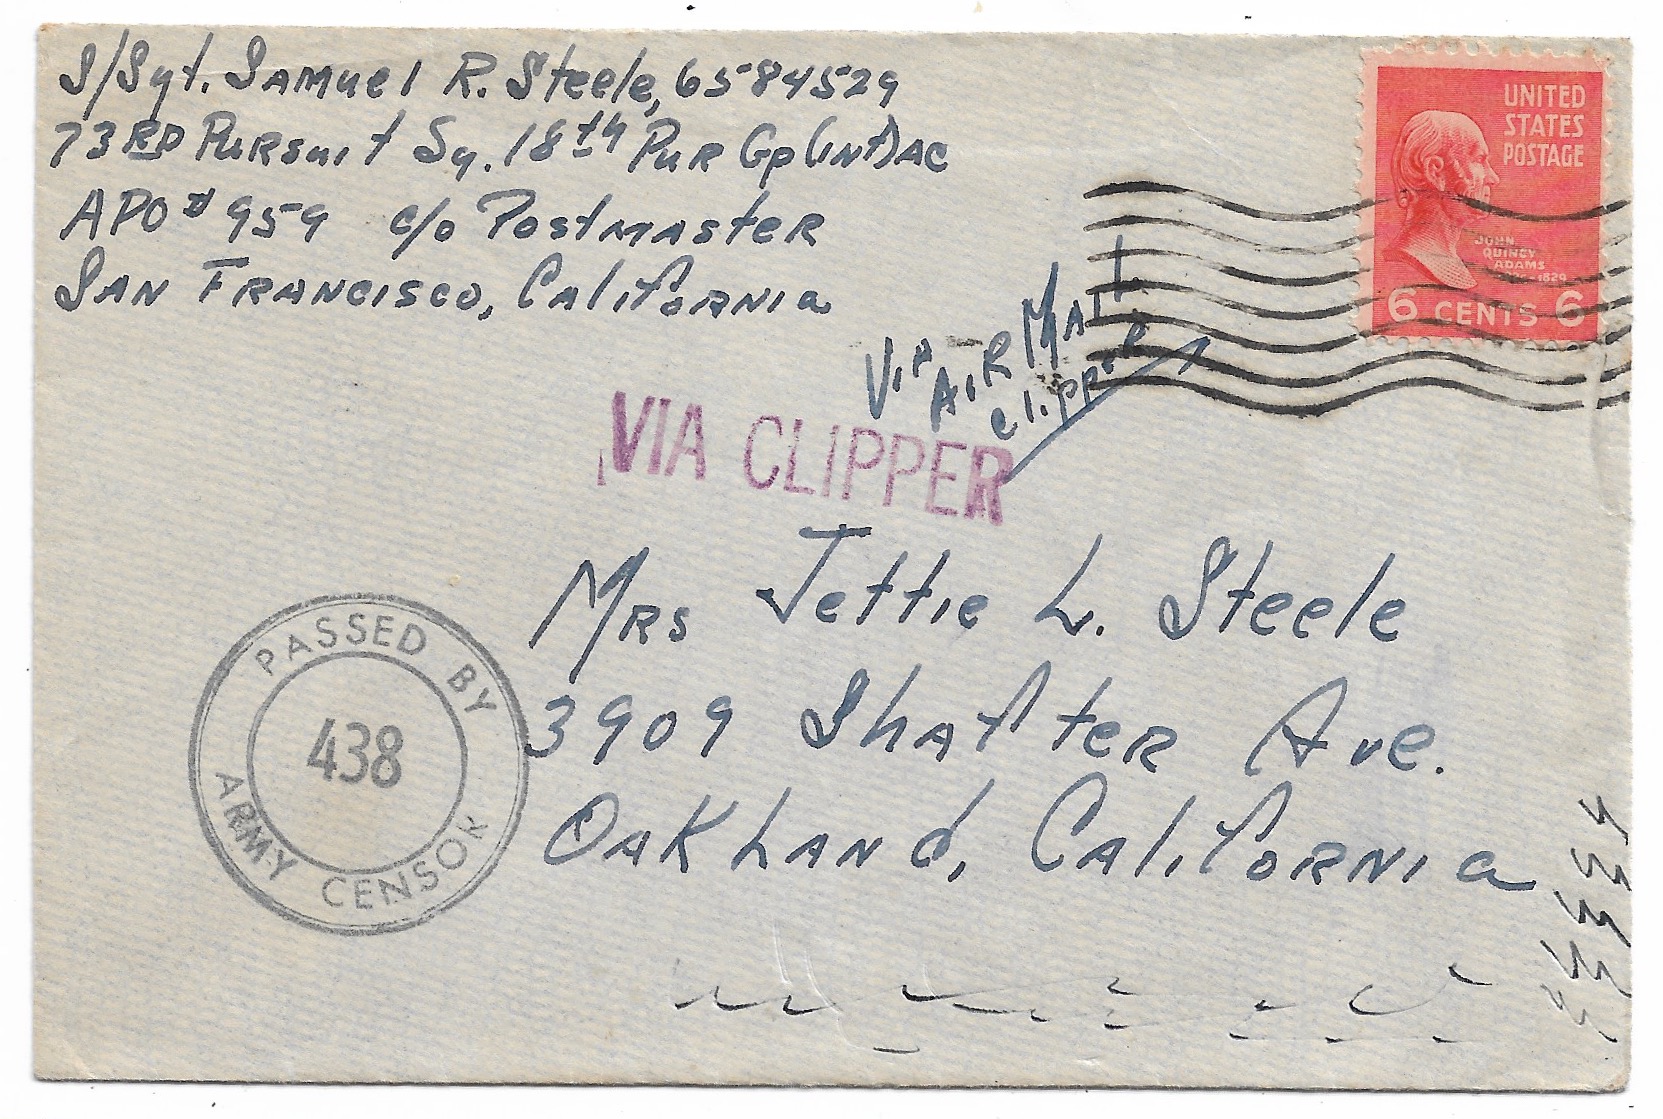 S/Sgt. Samuel R. Steele, 6584529
73RD Pursuit Sq. 18th Pur Gp (Int) AC
APO # 959 c/o Postmaster
San Francisco, California
UNITED
STATES
POSTAGE
JOHN
QUINCY
ADAMS
1829
6 CENTS 6
Via Air Mail
Clipper
VIA CLIPPER
Mrs Jettie L. Steele
3909 Shafter Ave.
Oakland, California
PASSED BY
438
ARMY CENSOR